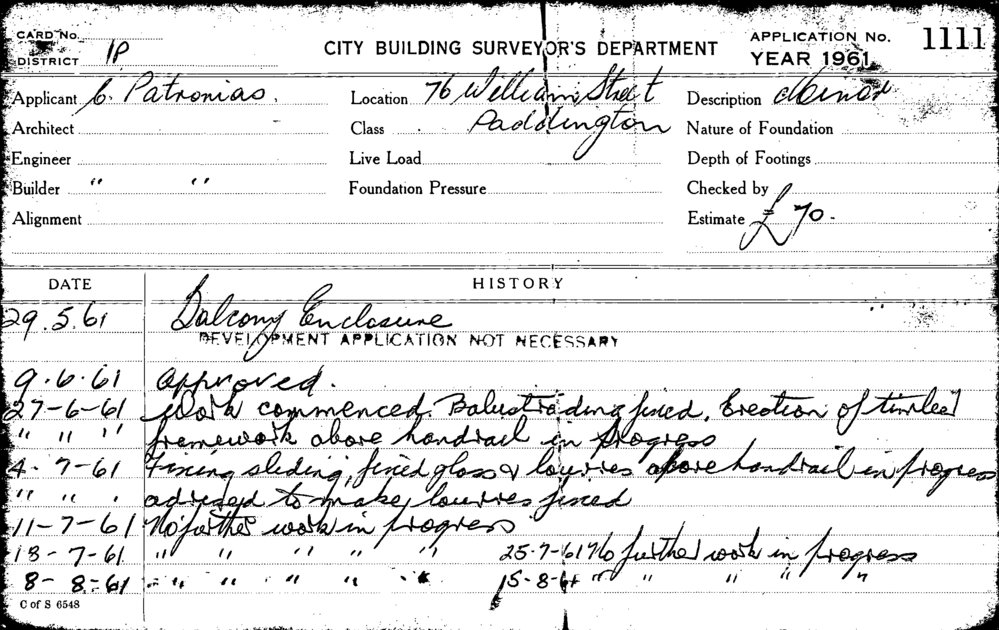 CARD No.
DISTRICT IP
CITY BUILDING SURVEYOR'S DEPARTMENT
APPLICATION No. 1111
YEAR 1961
Applicant C. Patronias. Location 76 William Street Description Minor
Architect Class Paddington Nature of Foundation
Engineer Live Load Depth of Footings
Builder " " Foundation Pressure Checked by
Alignment Estimate £70-
DATE HISTORY
29.5.61 Balcony Enclosure
DEVELOPMENT APPLICATION NOT NECESSARY
9.6.61 Approved.
27-6-61 Work commenced. Balustrading fixed. Erection of timber
" " " framework above handrail in progress
4-7-61 Fixing sliding, fixed glass & louvres above handrail in progress
" " " advised to make louvres fixed
11-7-61 No further work in progress
18-7-61 " " " " " 25-7-61 No further work in progress
8-8-61 " " " " " 15-8-61 " " " " "
C of S 6548